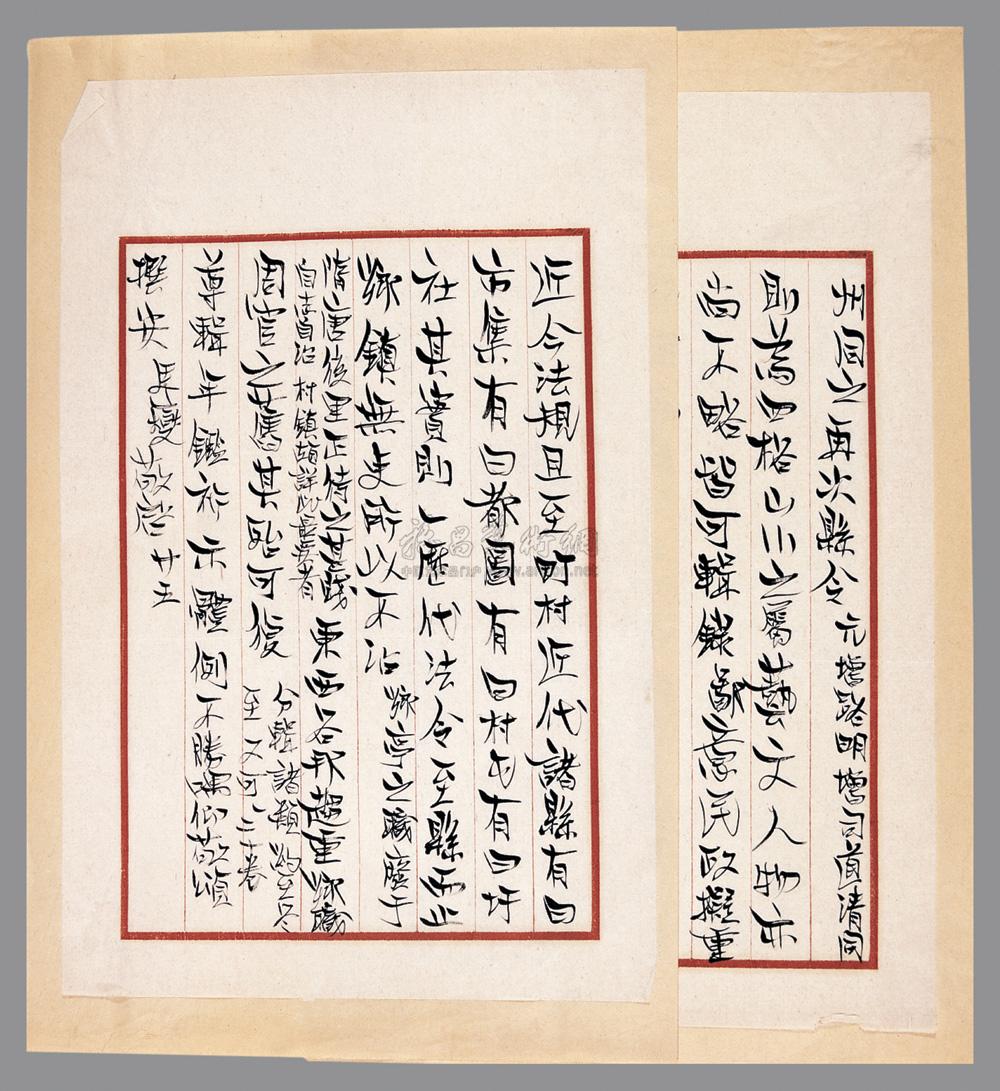 州同之再次縣令元增路明增司道清同
則為四格山川之屬藝文人物亦
尚不略皆可輯錄鄙意民政擬重
近今法規且至町村近代諸縣有曰
市集有曰都圖有曰村屯有曰圩
社其實則一歷代法令至縣而止
鄉鎮無吏所以不治鄉亭之職廢于
隋唐後里正待之甚賤東西各邦趨重鄉職
自李自治村鎮頗詳此最要者
周官之舊其殆可復分輯諸類約至冬
至又可一二十卷
尊輯年鑑祈示體例不勝瑀仰敬頌
撰安 馬夔敬啓 廿五